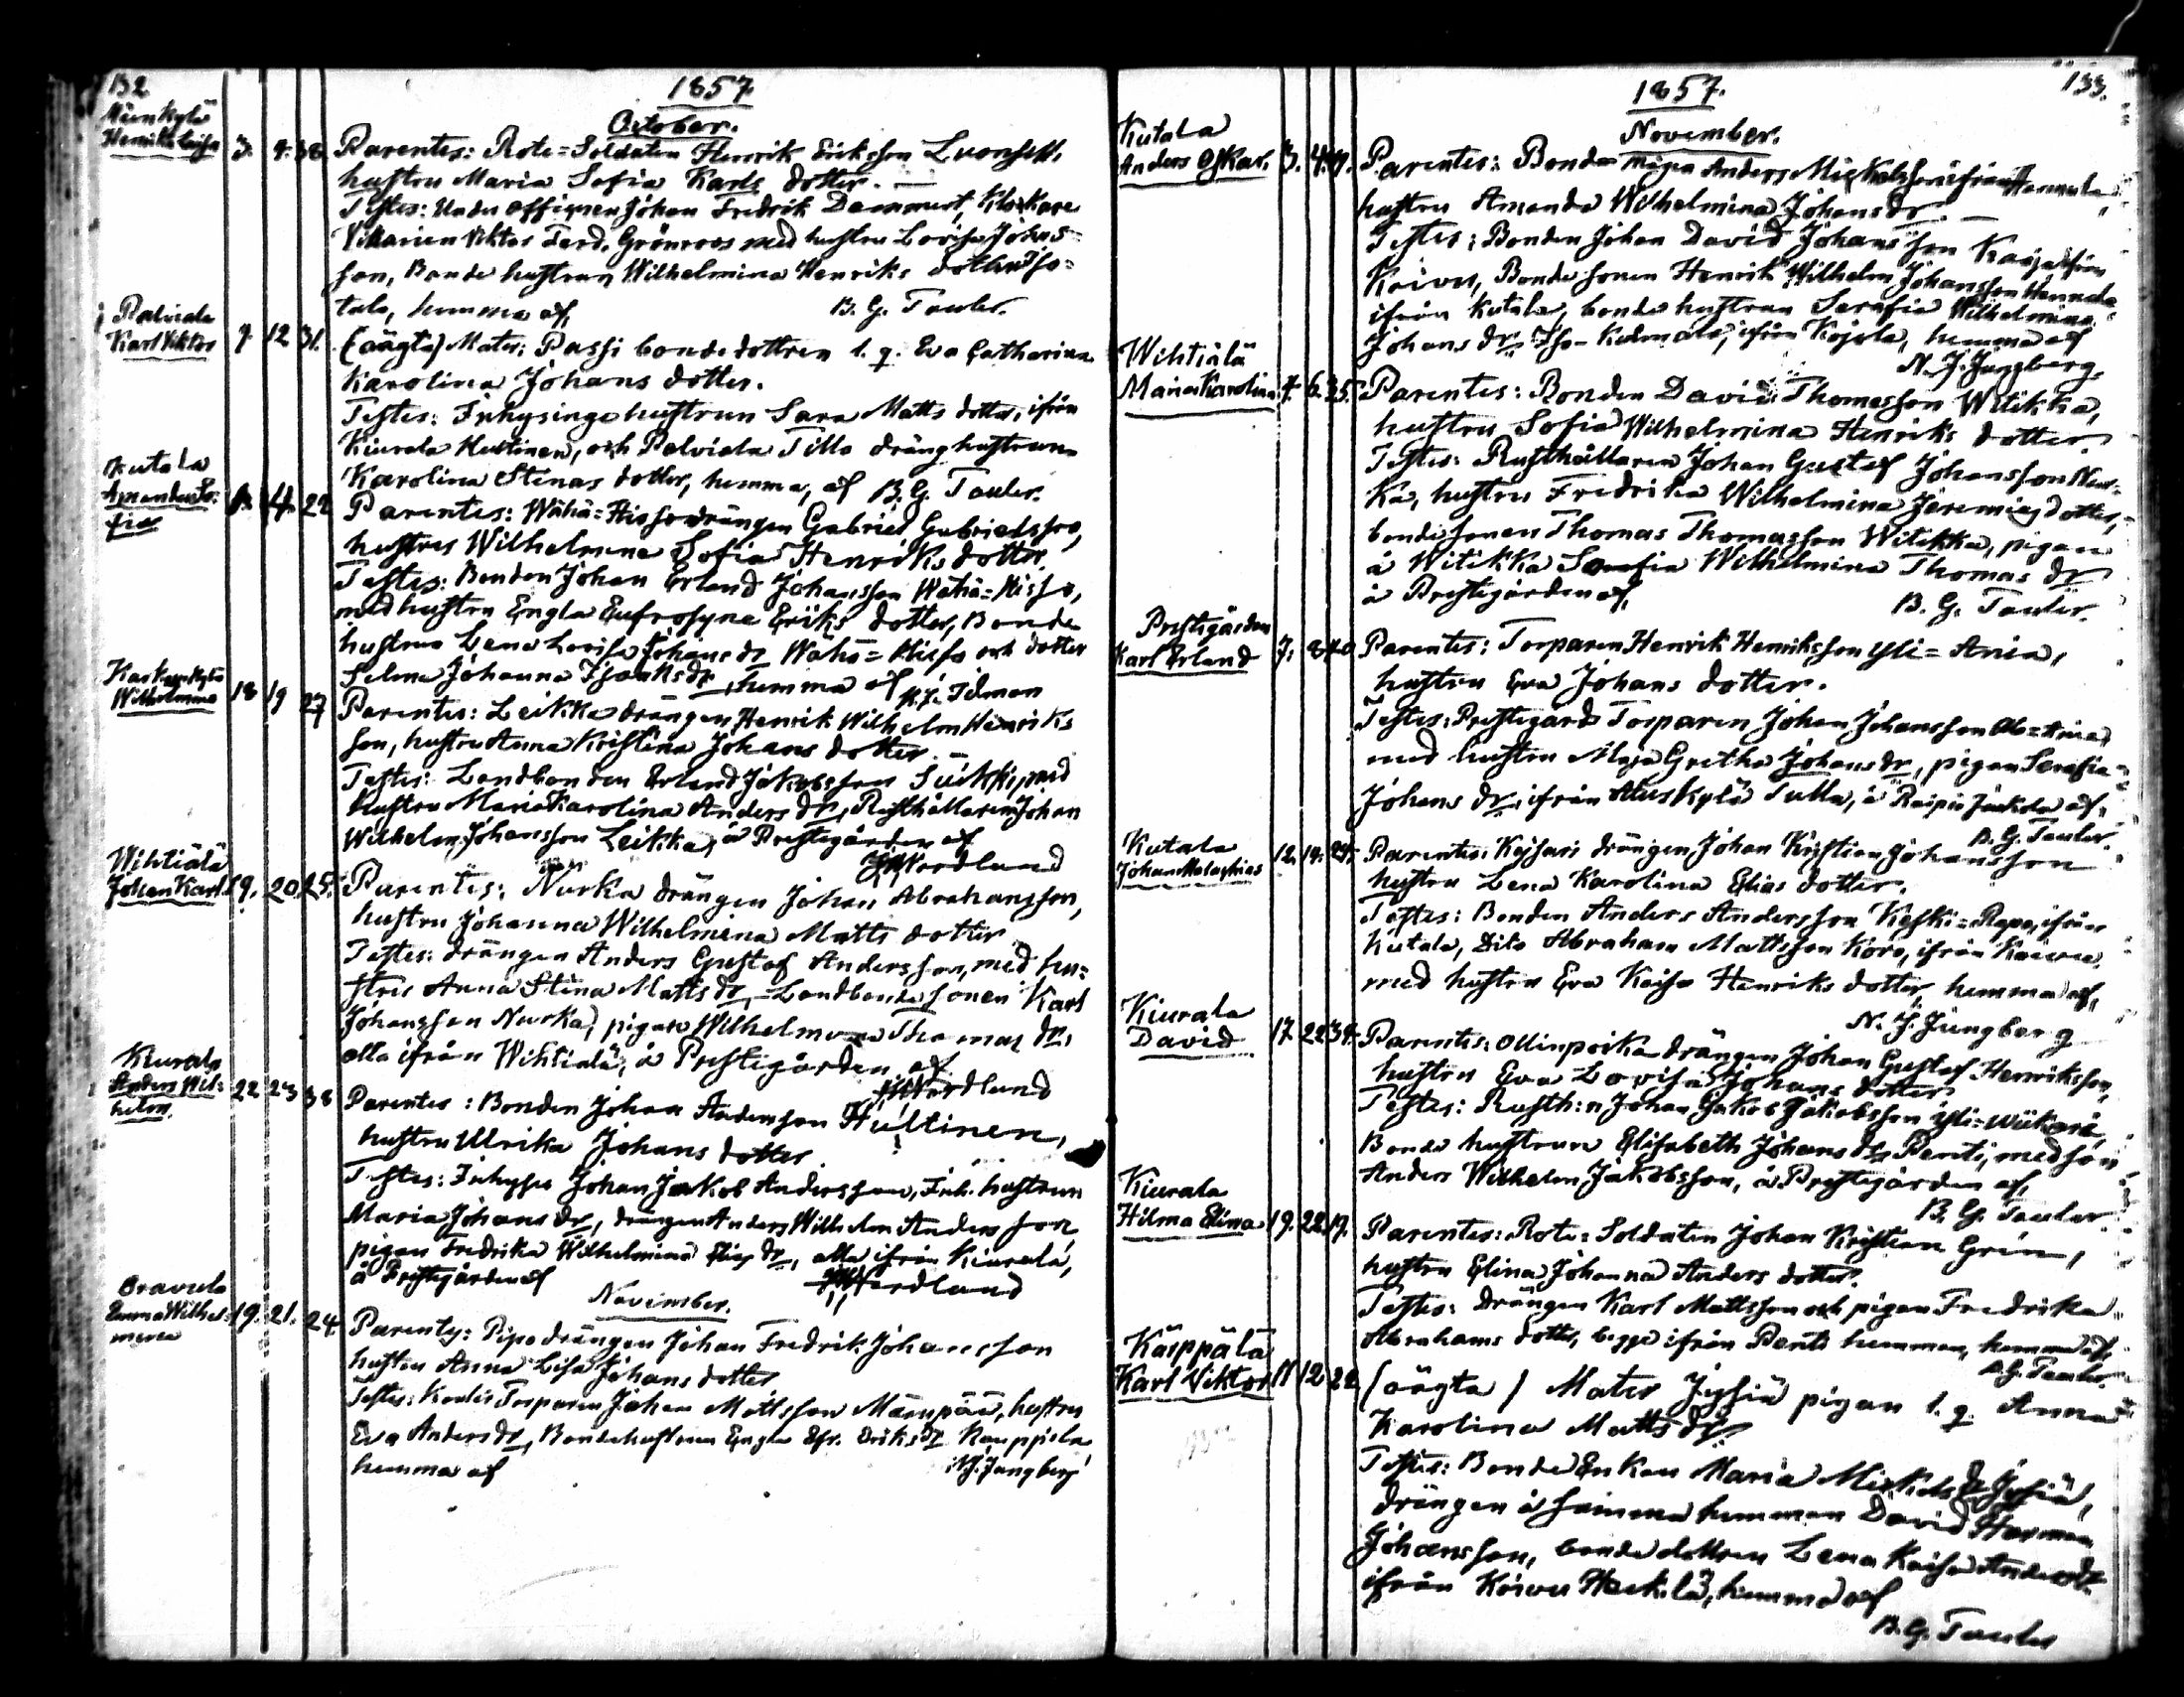 132
1857
October.
Kyla
Henrika Lovisa
3. 4. 38
Parentes: Rote=Soldaten Henrik Eriksson
hustru Maria Sofia Karls dotter. —
Testes: Under officeren Johan Fredrik Dammert, Klockare
Vikarien Viktor Ferd. Grönroos med hustru Lovisa Johans-
son, Bonde hustrun Wilhelmina Henriks dotter Iso=
talo, hemma af, B. G. Tauler.
Palviala
Karl Viktor
7. 12 31.
(oägta) Mater: Passi bonde dottren l. q. Eva Catharina
Karolina Johans dotter.
Testes: Inhysinge hustrun Sara Matts dotter, ifrån
Kiurala Huttinen, och Palviala Tillo dräng hustrun
Karolina Stinas dotter, hemma, af B. G. Tauler.
Kutala
Amanda So=
fia
14. 22
Parentes: Wähä=Hissa drängen Gabriel Gabrielsson,
hustru Wilhelmina Sofia Henriks dotter.
Testes: Bonden Johan Erland Johansson Wähä=Hissa,
med hustru Engla Eufrosyne Eriks dotter, Bonde
hustrun Lena Lovisa Johans dr Wähä=Hissa och dotter
Selma Johanna Isaks dr, hemma af Idman
Wilhelmina
18 19 27
Parentes: Leikka drängen Henrik Wilhelm Henriks
son, hustru Anna Kristina Johans dotter. —
Testes: Landbonden Erland Jakobsson med
hustru Maria Karolina Anders dr, Rusthållaren Johan
Wilhelm Johansson Leikka, å Prestegården af
Nordlund
Wihtiälä
Johan Karl
19. 20. 25.
Parentes: Nurka drängen Johan Abrahansson,
hustru Johanna Wilhelmina Matts dotter
Testes: drängen Anders Gustaf Andersson, med hu=
stru Anna Stina Matts dr, Landbonde sonen Karl
Johansson Nurka, pigan Wilhelmina Thomas dr,
alla ifrån Wihtiälä, å Prestegården af
Nordlund
Kiurala
Anders Wil=
helm.
22 23 38
Parentes: Bonden Johan Andersson Huttinen,
hustru Ulrika Johans dotter
Testes: Inhyses Johan Jakob Andersson, Inh. hustrun
Maria Johans dr, drängen Anders Wilhelm Andersson
pigan Fredrika Wilhelmina Elias dr, alla ifrån Kiurala,
å Prestegården af Nordlund
November.
Oravula
Emma Wilhel=
mina
19. 21. 24
Parentes: Pipo drängen Johan Fredrik Johansson
hustru Anna Lisa Johans dotter
Testes: Torparen Johan Mattsson Mäenpää, hustru
Eva Anders dr, Bondehustrun Engla Efr. Eriks dr Kauppila
hemma af N. J. Jungberg
133.
1857.
November.
Kutala
Anders Oskar.
3. 4.
Parentes: Bonde mågen Anders Mickelsson ifrån Hannula,
hustru Amanda Wilhelmina Johans dr —
Testes: Bonden Johan David Johansson Kaija ifrån
Koivu, Bonde sonen Henrik Wilhelm Johansson Hannula
ifrån Kutala, bonde hustrun Serafia Wilhelmina
Johans dr Iso- ifrån Kojola, hemma af
N. J. Jungberg.
Wihtiälä
Maria Karolina
4. 6. 35.
Parentes: Bonden David Thomasson Witikka,
hustru Sofia Wilhelmina Henriks dotter
Testes: Rusthållaren Johan Gustaf Johansson Nur=
ka, hustru Fredrika Wilhelmina Jeremias dotter,
bonde sonen Thomas Thomasson Witikka, pigan
å Witikka Serafia Wilhelmina Thomas dr
å Prestegården af, B. G. Tauler.
Prestgården
Karl Erland
7. 8 40
Parentes: Torparen Henrik Henriksson Yli=Ania,
hustru Eva Johans dotter.
Testes: Prestegårds Torparen Johan Johansson Ala=Ania,
med hustru Maja Gretha Johans dr, pigan Serafia
Johans dr, ifrån Tulla, å Raipio Jaakola af,
B. G. Tauler.
Kutala
Johan Malachias
12. 14. 24.
Parentes: Keisari drängen Johan Kristian Johansson
hustru Lena Karolina Elias dotter.
Testes: Bonden Anders Andersson Keski=Rapo, ifrån
Kutala, Dito Abraham Mattsson Koro, ifrån Koivu,
med hustru Eva Kaisa Henriks dotter, hemma af,
N. J. Jungberg
Kiurala
David
17. 22 34.
Parentes: Ollinpoika drängen Johan Gustaf Henriksson,
hustru Eva Lovisa Johans dotter
Testes: Rusth:n Johan Jakob Jakobsson Yli=
Bonde hustrun Elisabeth Johans dr Pentti, med son
Anders Wilhelm Jakobsson, å Prestegården af,
B. G. Tauler.
Kiurala
Hilma Elina
19. 22 19.
Parentes: Rote=Soldaten Johan Kristian Grén,
hustru Elina Johanna Anders dotter.
Testes: drängen Karl Mattsson och pigan Fredrika
Abrahams dotter, begge ifrån Pentti hemman, hemma af
B. G. Tauler.
Käppälä
Karl Viktor
11 12 22
(oägta) Mater pigan l. q. Anna
Karolina Matts dr
Testes: Bonde Enkan Maria Mickels dr
drängen å samma hemman David Herman
Johansson, bonde dottren Lena Kaisa Anders dr
ifrån Koivu Heikilä, hemma af
B. G. Tauler